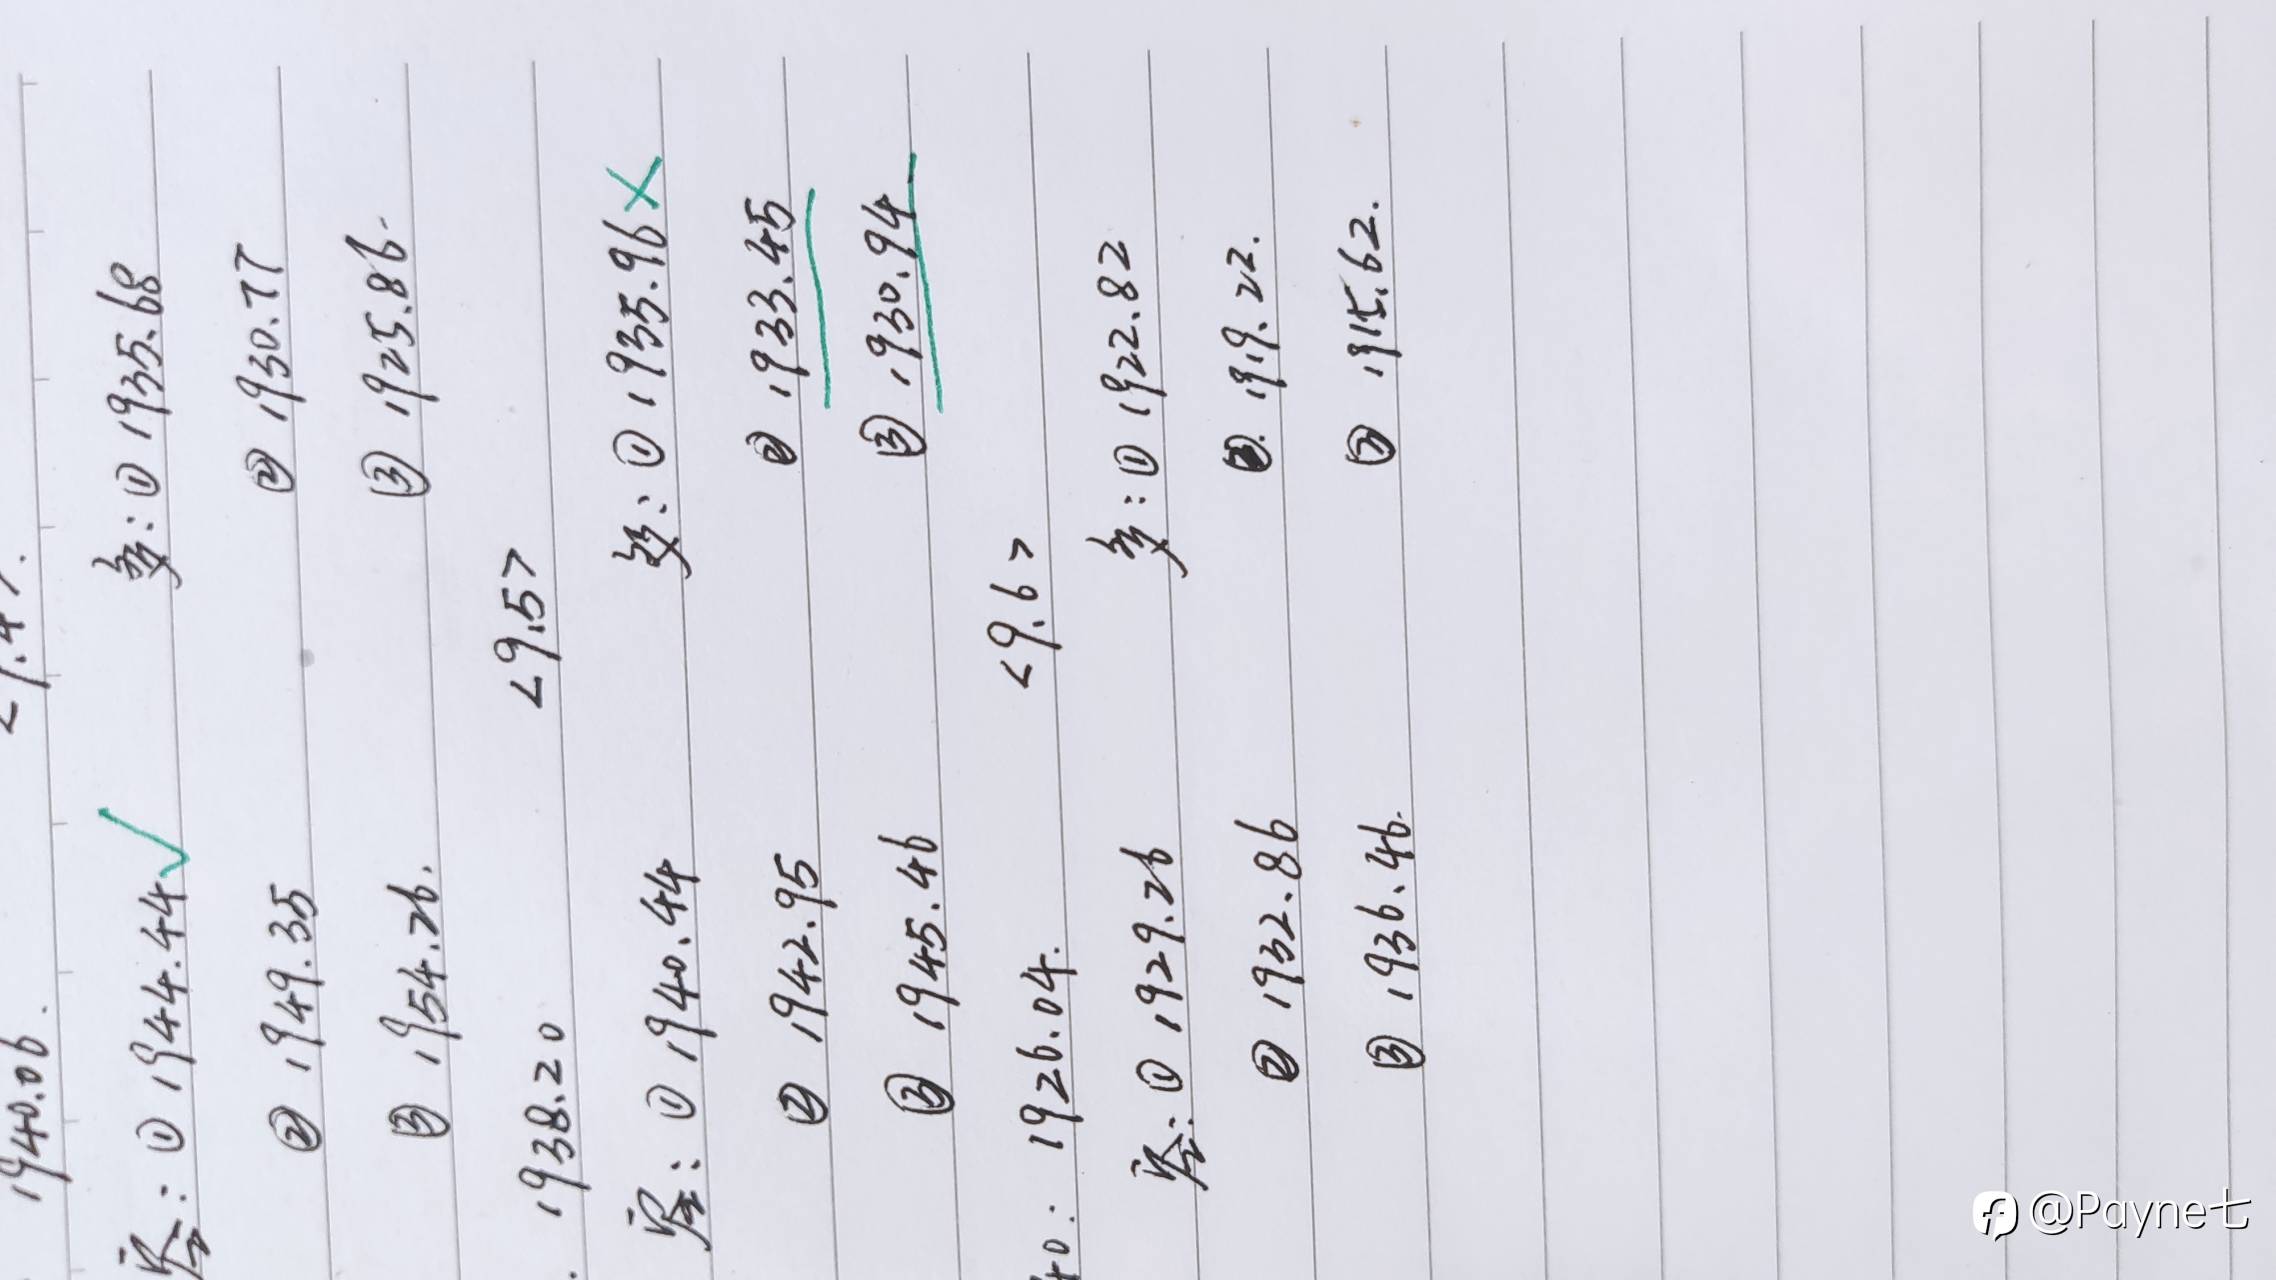 1940.06.
空：① 1944.44 ✓ 多：① 1935.68
② 1949.35 ② 1930.77
③ 1954.26. ③ 1925.86.
1938.20 <9.5>
空：① 1940.44 多：① 1935.96 ×
② 1942.95 ② 1933.45
③ 1945.46 ③ 1930.94
40: 1926.04. <9.6>
空：① 1929.26 多：① 1922.82
② 1932.86 ② 1919.22.
③ 1936.46. ③ 1915.62.
@Payne七